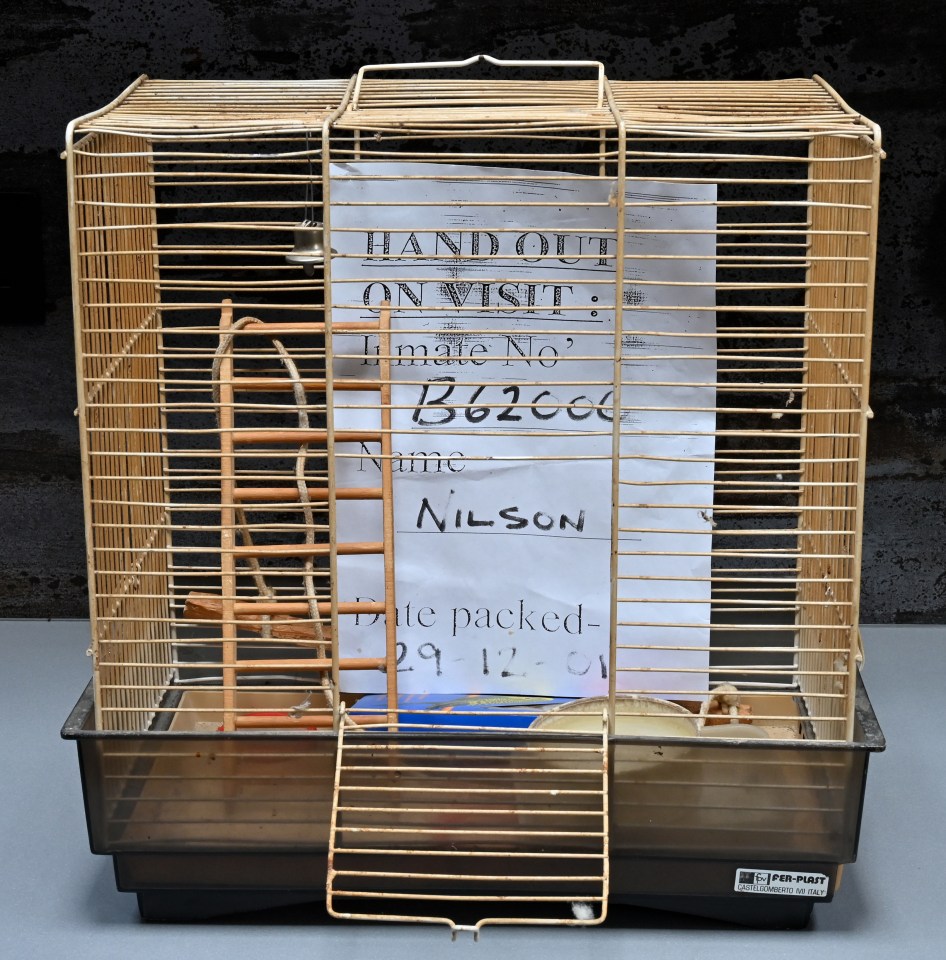 HAND OUT
ON VISIT :
Inmate No'
B62006
Name
NILSON
Date packed-
29-12-01
fpv FER-PLAST
CASTELGOMBERTO (VI) ITALY